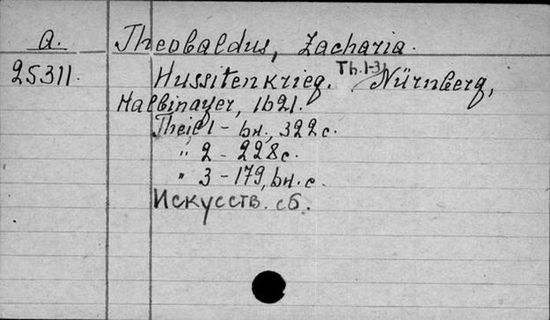 a. Theobaldus, Zacharia.
25311. Hussitenkrieg. Th.1-3. Nürnberg,
Halbmayer, 1621.
Theil 1 - bн., 322 c.
" 2 - 228 c.
" 3 - 179, bн. c.
Искусств. сб.